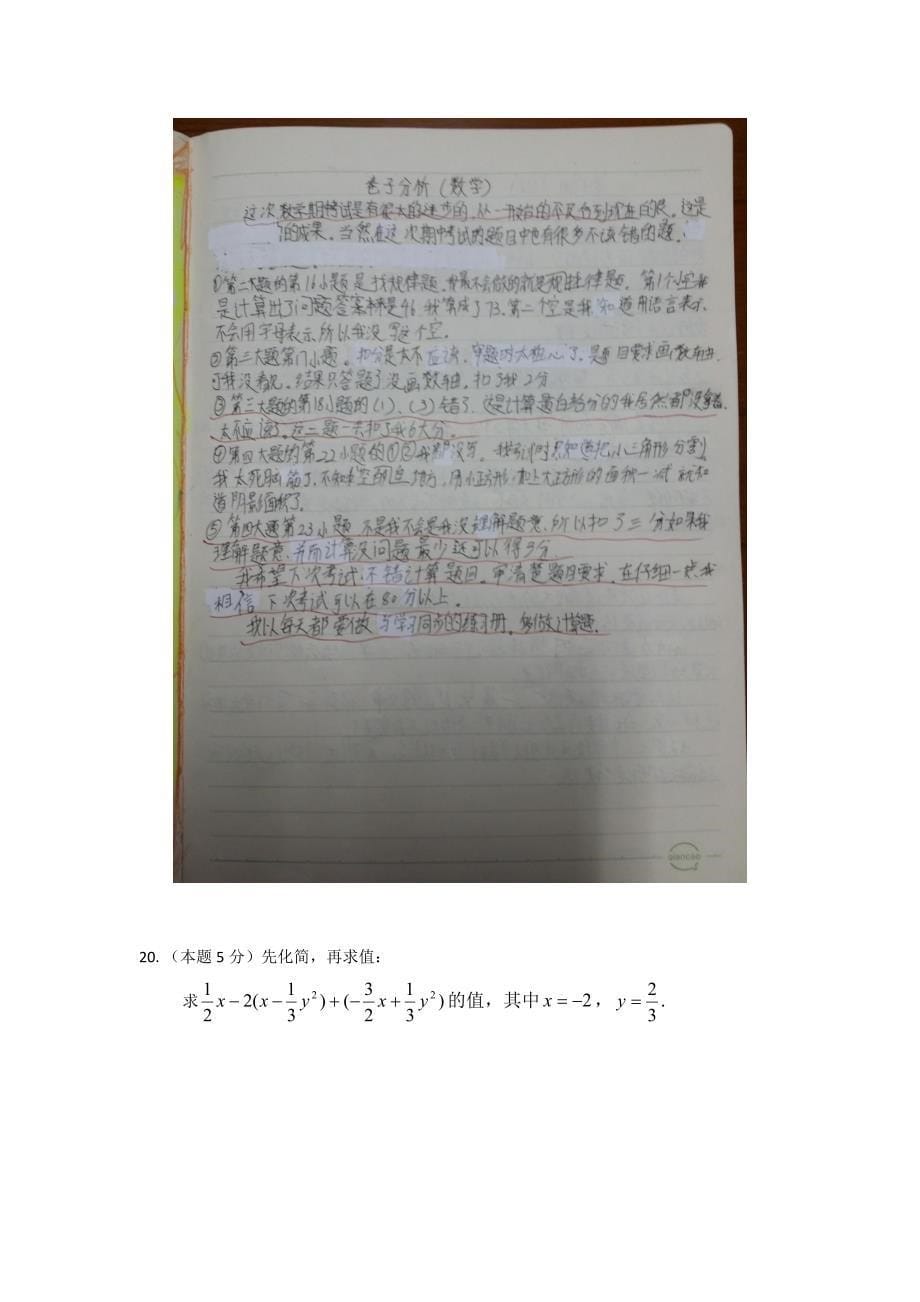 卷子分析(数学)
这次数学期中考试是有很大的进步的,从一开始的不及格到现在的良。这是
的成果。当然在这次期中考试的题目中也有很多不该错的题。
①第二大题的第16小题是找规律题,我最不会做的就是规律题。第1个空我
是计算出了问题答案是46,我算成了73.第二个空是我知道用语言表示,
不会用字母表示所以我没写这个空。
②第三大题第17小题。扣分是太不应该,审题时太粗心了,题目要求画数轴
我没看见,结果只答题了没画数轴,扣了我2分
③第三大题的第18小题的(1)、(3)错了,这是计算题白给分的我居然都没拿着,
太不应该了。这二题一共扣了我6大分。
④第四大题的第22小题的①②我都没写。我考试时只知道把小三角形分割,
我太死脑筋了,不知空白地方,用小正方形加上大正方形的面积一减就知
道阴影面积了。
⑤第四大题第23小题,不是我不会是我没理解题意,所以扣了三分如果我
理解题意,并而计算没问题最少还可以得3分
我希望下次考试,不错计算题目。审清楚题目要求,在仔细一点,我
相信下次考试可以在80分以上。
我以每天都要做与学习同步的练习册。多做计算题.
qiancao
20. (本题5分)先化简,再求值:
求 \frac{1}{2}x-2(x-\frac{1}{3}y^2)+(-\frac{3}{2}x+\frac{1}{3}y^2) 的值,其中 x=-2, y=\frac{2}{3}.